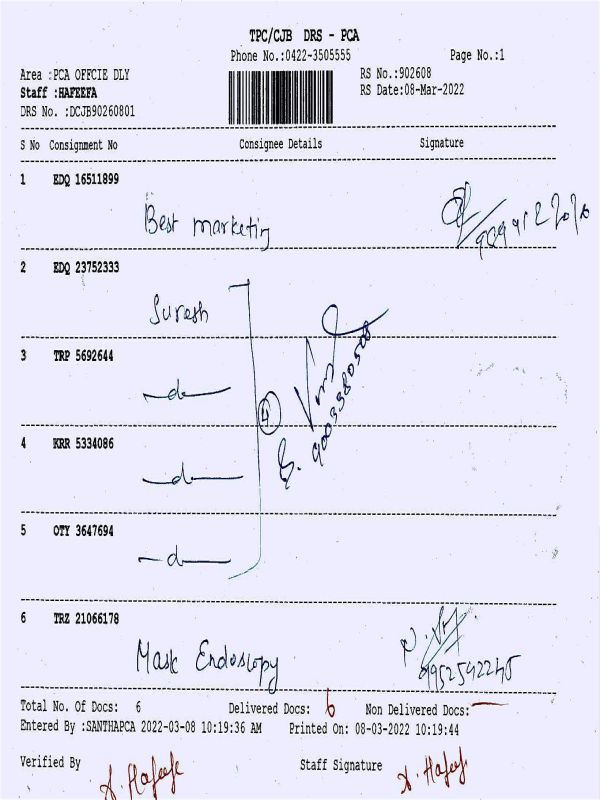 TPC/CJB DRS - PCA
Phone No.:0422-3505555 Page No.:1
Area :PCA OFFCIE DLY RS No.:902608
Staff :HAFEEFA RS Date:08-Mar-2022
DRS No. :DCJB90260801
S No Consignment No Consignee Details Signature
1 EDQ 16511899
Best marketing
2 EDQ 23752333
Suresh
3 TRP 5692644
-do-
4
4 KRR 5334086
-do-
5 OTY 3647694
-do-
6 TRZ 21066178
Mask Endoscopy
9952592245
Total No. Of Docs: 6 Delivered Docs: 6 Non Delivered Docs: —
Entered By :SANTHAPCA 2022-03-08 10:19:36 AM Printed On: 08-03-2022 10:19:44
Verified By Staff Signature
A. Hafeefa A. Hafeefa